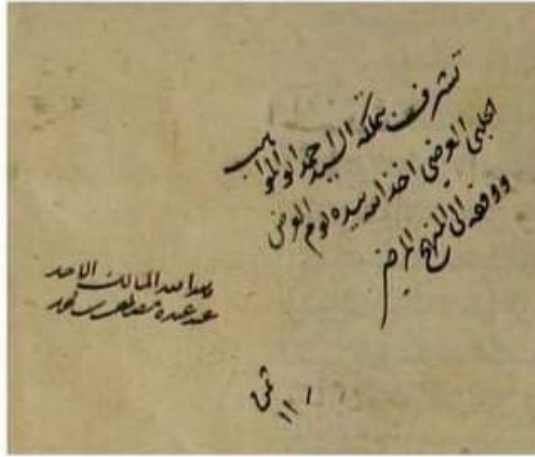 تشرف بملكه السيد احمد ابو المواهب
جلبي العرضي اخذ الله بيده يوم العرض
ووفقه الى المنهج المرضي
لله المالك الاحد
عند عبده مصطفى
ثمن
١١